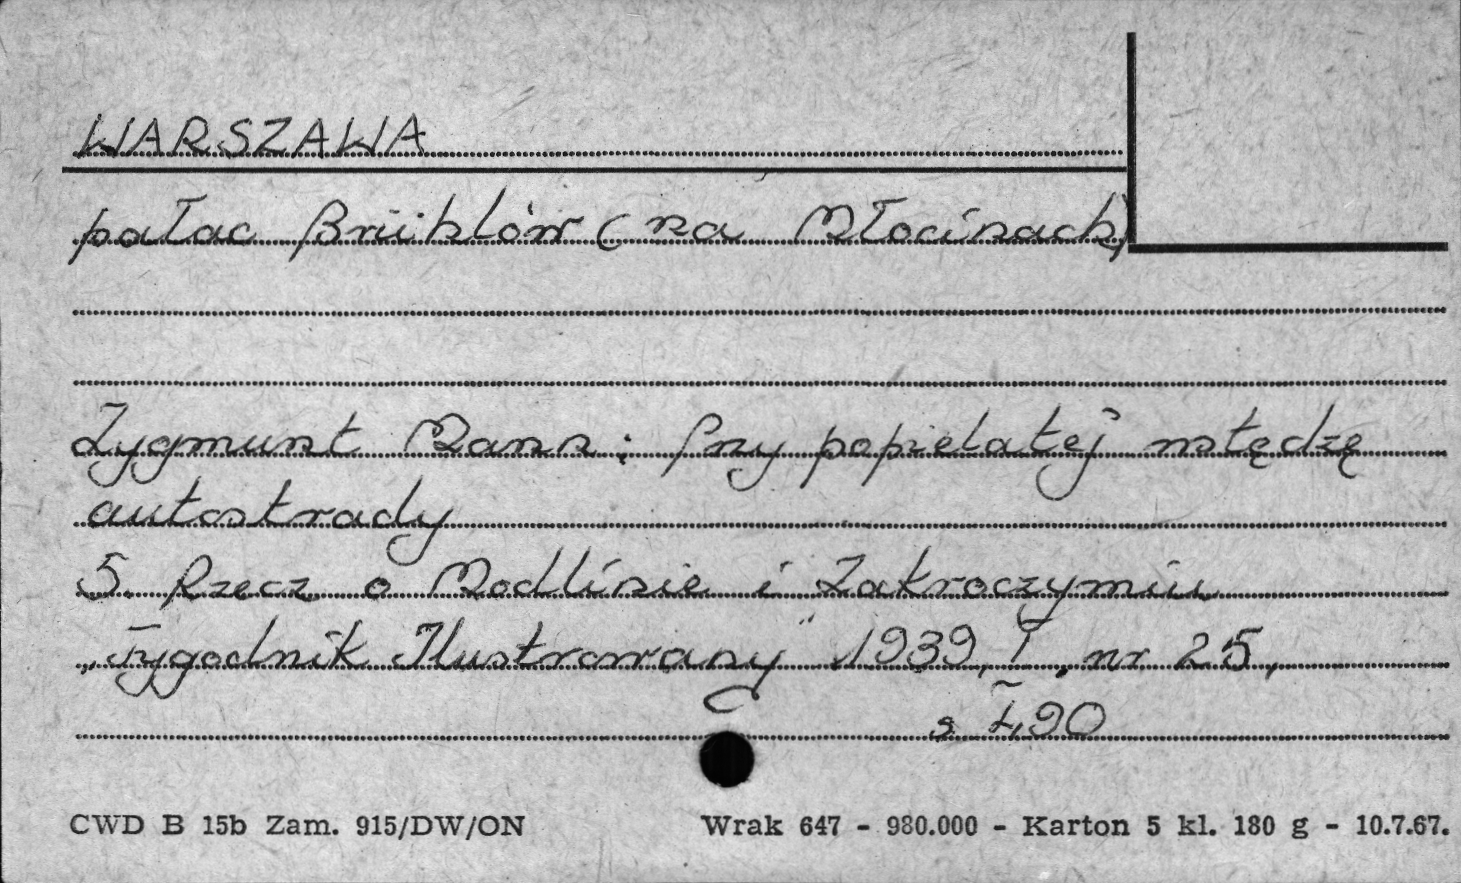 WARSZAWA
pałac Brühlów (na Młocinach)
Zygmunt Mann: Przy popielatej wstędzę
autostrady
5. Rzecz o Modlinie i Zakroczymiu
„Tygodnik Ilustrowany" 1939, I, nr 25,
s. 490
CWD B 15b Zam. 915/DW/ON Wrak 647 - 980.000 - Karton 5 kl. 180 g - 10.7.67.